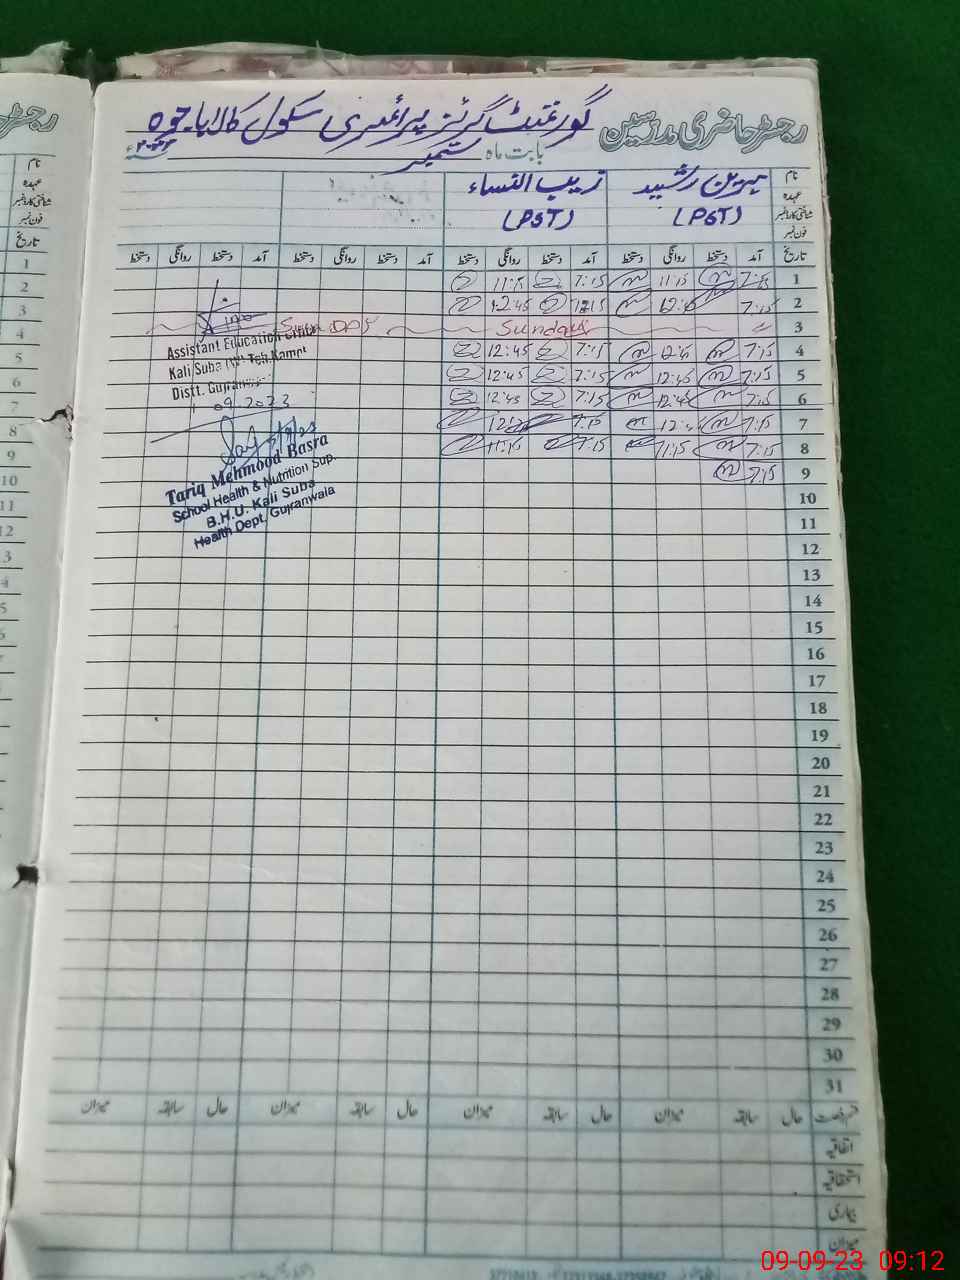 رجسٹر حاضری مدرسین گورنمنٹ گرلز پرائمری سکول
بابت ماہ ستمبر
نام
عہدہ
شناختی کارڈ نمبر
فون نمبر
پروین رشید
(PST)
زیب النساء
(PST)
تاریخ آمد دستخط روانگی دستخط آمد دستخط روانگی دستخط آمد دستخط روانگی دستخط آمد دستخط روانگی دستخط
1 7:15 11:15 7:15 11:15
2 7:15 12:45 12:15 12:45
3 Sunday Sunday
4 7:15 12:45 7:15 12:45
5 7:15 12:45 7:15 12:45
6 7:15 12:45 7:15 12:45
7 7:15 7:15
8 7:15 11:15 7:15 11:15
9 7:15
10
11
12
13
14
15
16
17
18
19
20
21
22
23
24
25
26
27
28
29
30
31
Assistant Education Officer
Kali Suba (W) Teh. Kamoki
Distt. Gujranwala
09.2023
Tariq Mehmood Basra
School Health & Nutrition Sup.
B.H.U. Kali Suba
Health Dept. Gujranwala
حال سابقہ میزان حال سابقہ میزان حال سابقہ میزان حال سابقہ میزان
اتفاقیہ
استحقاقیہ
بیماری
میزان
نام
عہدہ
شناختی کارڈ نمبر
فون نمبر
تاریخ
1
2
3
4
5
6
7
8
9
10
11
12
09-09-23 09:12